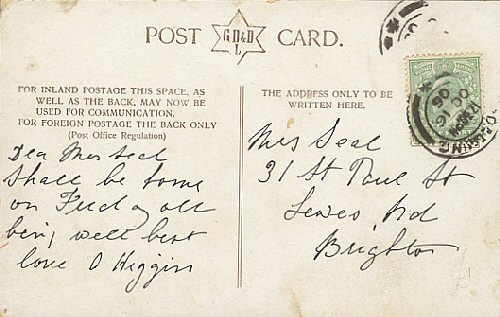 POST CARD.
G.D.&D.
L.
FOR INLAND POSTAGE THIS SPACE, AS
WELL AS THE BACK, MAY NOW BE
USED FOR COMMUNICATION.
FOR FOREIGN POSTAGE THE BACK ONLY
(Post Office Regulation)
Dea Mrs Seal
Shall be home
on Friday all
being well best
love A Higgins
THE ADDRESS ONLY TO BE
WRITTEN HERE.
Mrs Seal
31 St Paul St
Lewes Rd
Brighton
OC
06